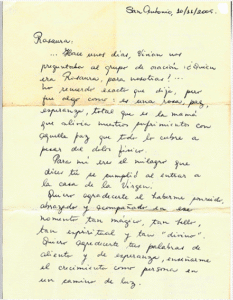 San Antonio, 20/11/2005.
Rosaura:
... Hace unos días, Vivian nos
preguntaba al grupo de oración ¿Quién
era Rosaura, para nosotras?
No recuerdo exacto que dije, pero
fue algo como: es una rosa, paz,
esperanza, total que es la mamá
que alivia nuestros sufrimientos con
aquella paz que todo lo cubre a
pesar del dolor físico.
Para mi eres el milagro que
dices tu se cumplió al entrar a
la casa de la Virgen.
Quiero agradecerte el haberme
abrazado y acompañado en ese
momento tan mágico, tan bello,
tan espiritual y tan "divino".
Quiero agradecerte tus palabras de
aliento y de esperanza, enseñarme
el crecimiento como persona en
un camino de luz.